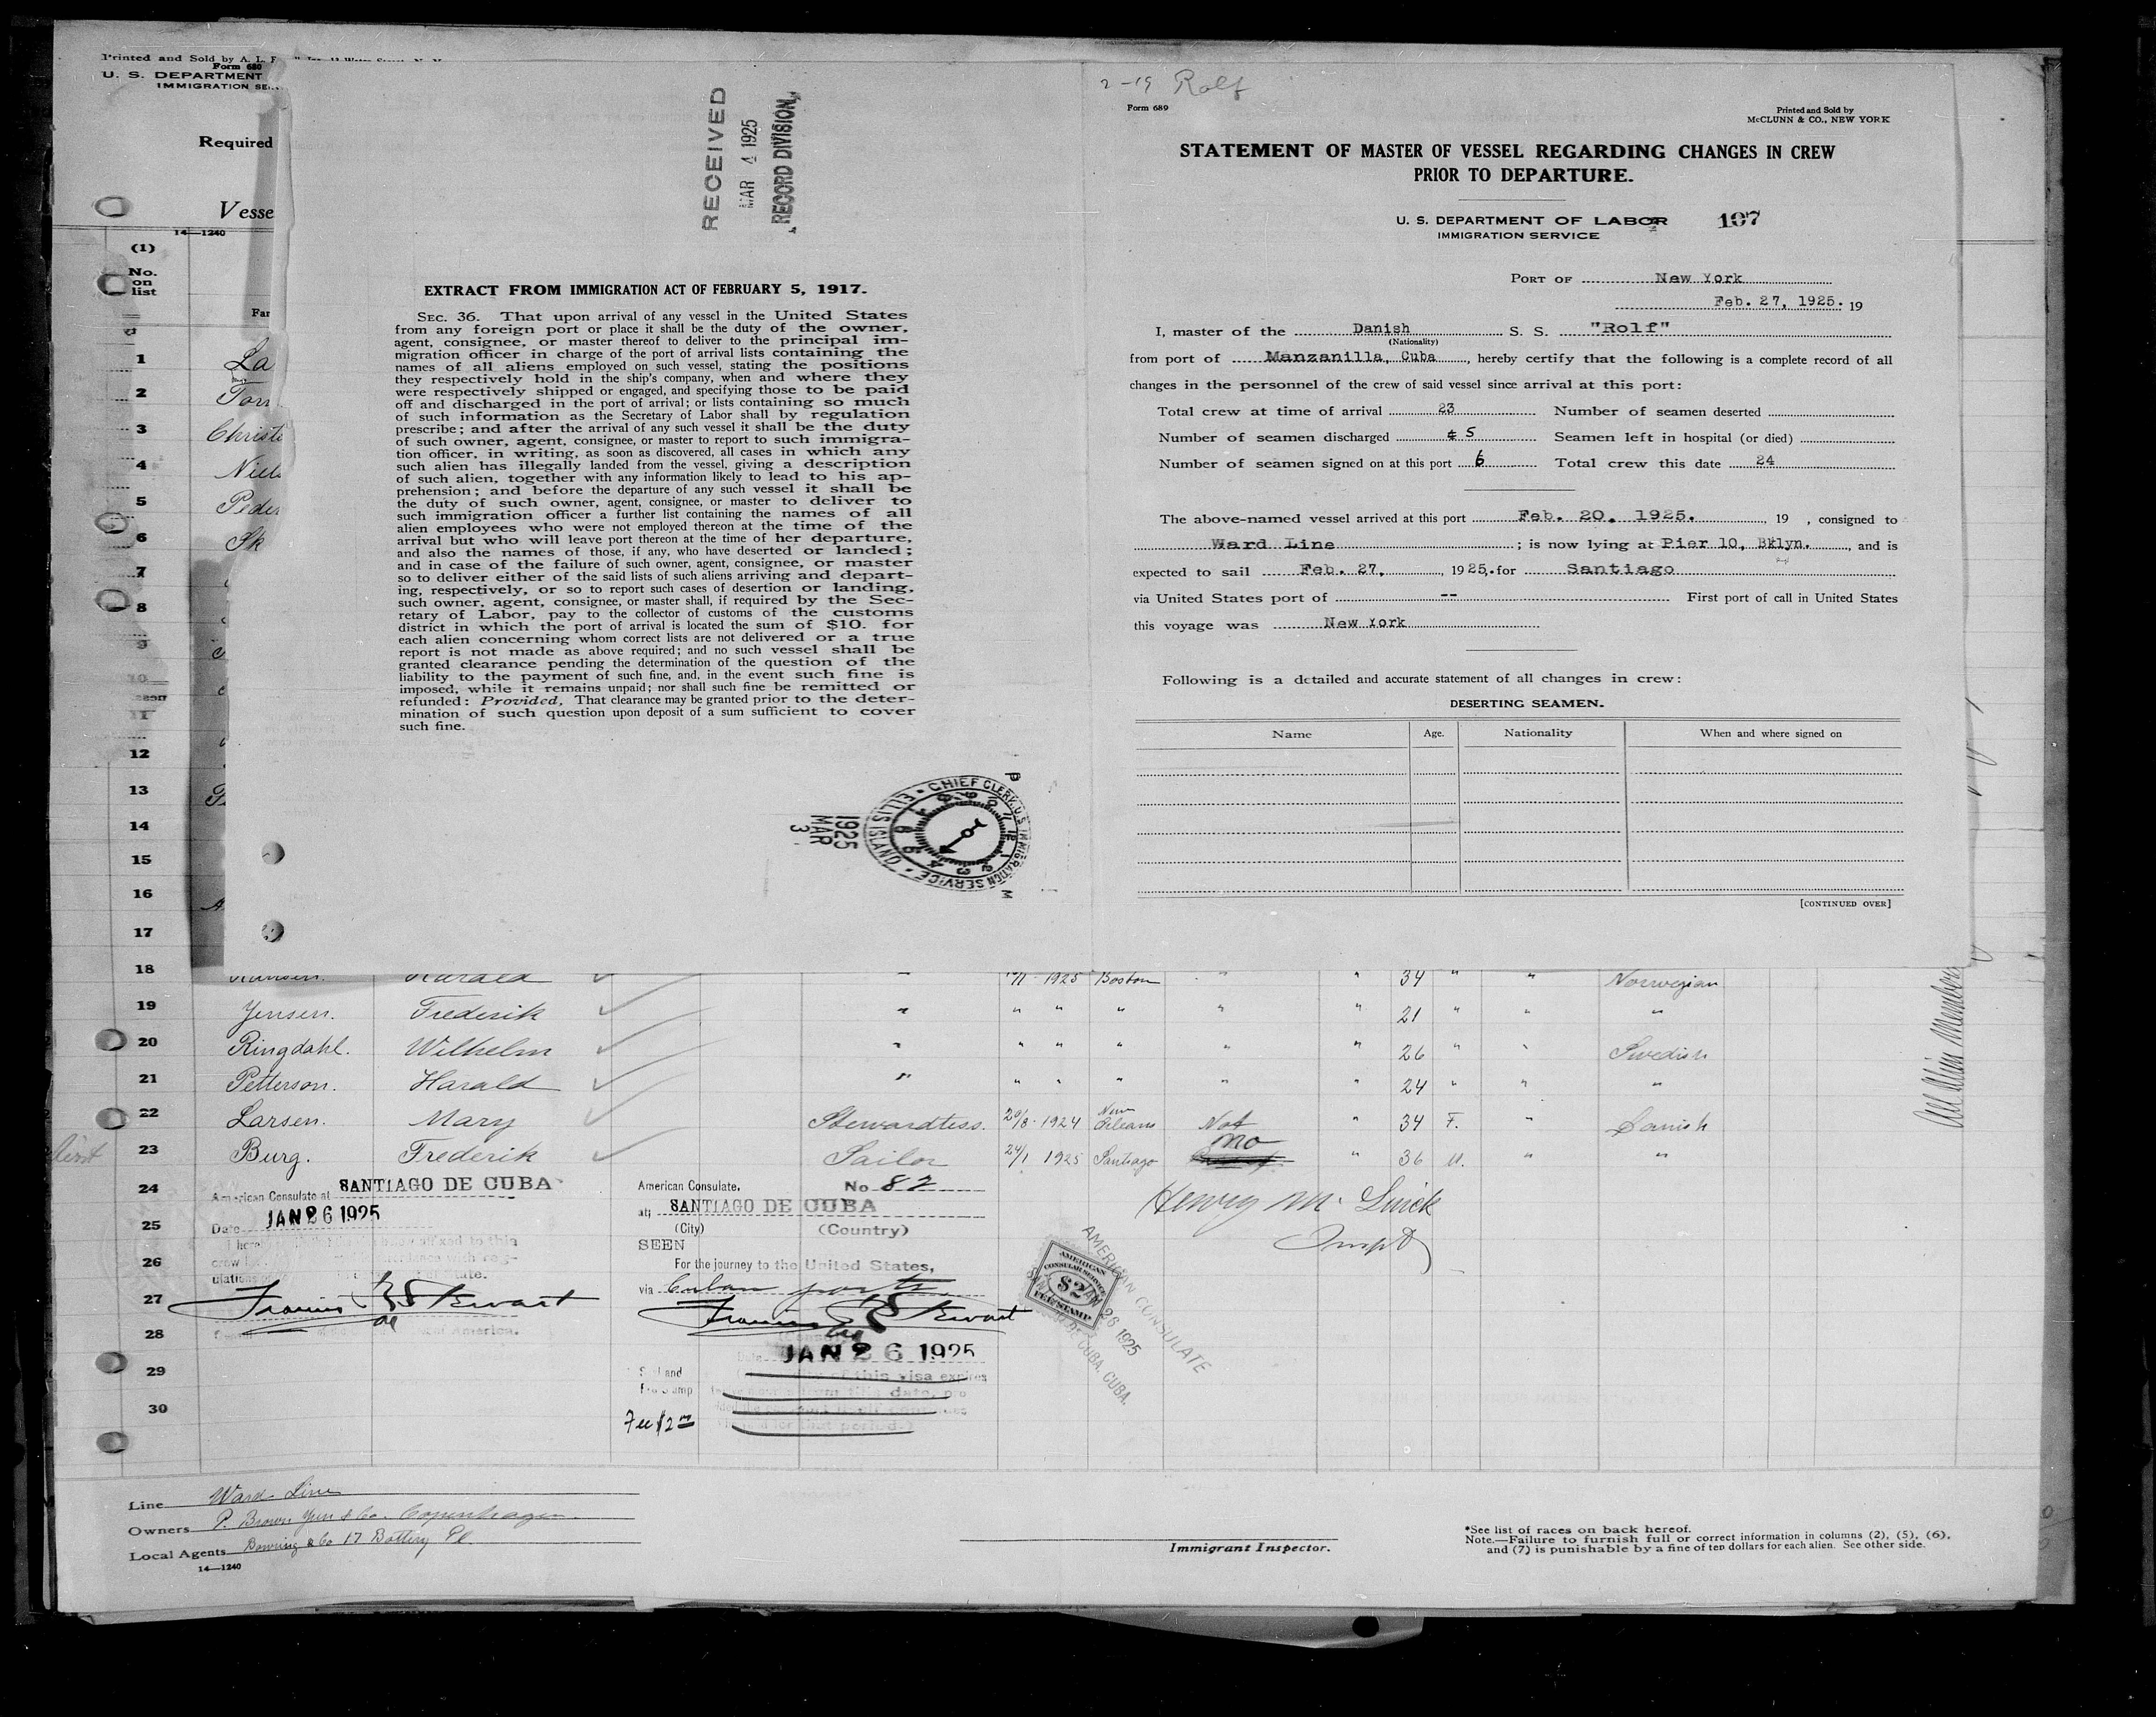 Printed and Sold by A. L.
Form 680
U. S. DEPARTMENT
IMMIGRATION SE
Required
Vesse
14—1240
(1)
No.
on
list
1
La
2
3
Christ
4
Niel
5
Peder
6
Sk
7
8
9
10
11
12
13
14
15
16
17
RECEIVED
MAR 4 1925
RECORD DIVISION
EXTRACT FROM IMMIGRATION ACT OF FEBRUARY 5, 1917.
SEC. 36. That upon arrival of any vessel in the United States
from any foreign port or place it shall be the duty of the owner,
agent, consignee, or master thereof to deliver to the principal im-
migration officer in charge of the port of arrival lists containing the
names of all aliens employed on such vessel, stating the positions
they respectively hold in the ship's company, when and where they
were respectively shipped or engaged, and specifying those to be paid
off and discharged in the port of arrival; or lists containing so much
of such information as the Secretary of Labor shall by regulation
prescribe; and after the arrival of any such vessel it shall be the duty
of such owner, agent, consignee, or master to report to such immigra-
tion officer, in writing, as soon as discovered, all cases in which any
such alien has illegally landed from the vessel, giving a description
of such alien, together with any information likely to lead to his ap-
prehension; and before the departure of any such vessel it shall be
the duty of such owner, agent, consignee, or master to deliver to
such immigration officer a further list containing the names of all
alien employees who were not employed thereon at the time of the
arrival but who will leave port thereon at the time of her departure,
and also the names of those, if any, who have deserted or landed;
and in case of the failure of such owner, agent, consignee, or master
so to deliver either of the said lists of such aliens arriving and depart-
ing, respectively, or so to report such cases of desertion or landing,
such owner, agent, consignee, or master shall, if required by the Sec-
retary of Labor, pay to the collector of customs of the customs
district in which the port of arrival is located the sum of $10. for
each alien concerning whom correct lists are not delivered or a true
report is not made as above required; and no such vessel shall be
granted clearance pending the determination of the question of the
liability to the payment of such fine, and, in the event such fine is
imposed, while it remains unpaid; nor shall such fine be remitted or
refunded: Provided, That clearance may be granted prior to the deter-
mination of such question upon deposit of a sum sufficient to cover
such fine.
1925
MAR
3
CHIEF CLERK, U.S. IMMIGRATION SERVICE · ELLIS ISLAND
2-19 Rolf
Form 689
Printed and Sold by
McCLUNN & CO., NEW YORK
STATEMENT OF MASTER OF VESSEL REGARDING CHANGES IN CREW
PRIOR TO DEPARTURE.
U. S. DEPARTMENT OF LABOR 107
IMMIGRATION SERVICE
PORT OF New York
Feb. 27, 1925. 19
I, master of the Danish S. S. "Rolf"
(Nationality)
from port of Manzanilla, Cuba, hereby certify that the following is a complete record of all
changes in the personnel of the crew of said vessel since arrival at this port:
Total crew at time of arrival 23 Number of seamen deserted
Number of seamen discharged 5 Seamen left in hospital (or died)
Number of seamen signed on at this port 6 Total crew this date 24
The above-named vessel arrived at this port Feb. 20, 1925. , 19 , consigned to
Ward Line ; is now lying at Pier 10, Bklyn. , and is
expected to sail Feb. 27, , 1925, for Santiago
via United States port of -- First port of call in United States
this voyage was New York
Following is a detailed and accurate statement of all changes in crew:
DESERTING SEAMEN.
Name Age. Nationality When and where signed on
[CONTINUED OVER]
18 Harald " 1925 Boston " " 34 " " Norwegian
19 Jensen. Frederik " " " " " " 21 " " "
20 Ringdahl. Wilhelm " " " " " " 26 " " Swedish
21 Petterson. Harald " " " " " " 24 " " "
22 Larsen. Mary Stewardtess. 20/8 - 1924 New Orleans Not " 34 F. " Danish
23 Burg. Frederik Sailor 24/1 1925 Santiago no " 36 M. " "
list
24
25
26
27
28
29
30
American Consulate at SANTIAGO DE CUBA
Date JAN 26 1925
American Consulate. No 82
at SANTIAGO DE CUBA
(City) (Country)
SEEN
For the journey to the United States,
via Cuban ports
JAN 26 1925
Fee $2 00
AMERICAN
CONSULAR SERVICE
$2
FEE STAMP
AMERICAN CONSULATE
JAN 26 1925
CUBA, CUBA.
Line Ward Line
Owners P. Brown Jun & Co. Copenhagen
Local Agents Bowring & Co 17 Battery Pl.
14—1240
Immigrant Inspector.
*See list of races on back hereof.
Note.—Failure to furnish full or correct information in columns (2), (5), (6),
and (7) is punishable by a fine of ten dollars for each alien. See other side.